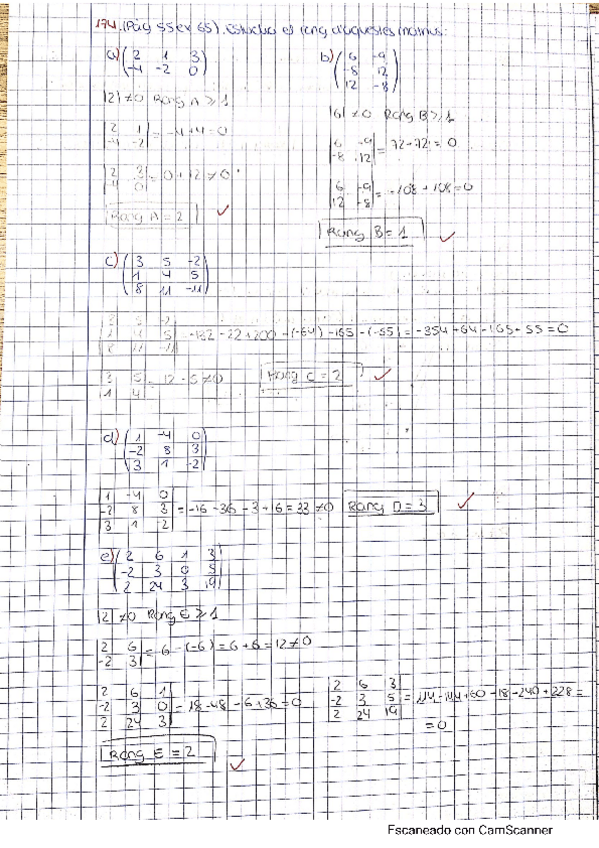 174. (Pàg 55 ex 65). Estudia el rang d'aquestes matrius:
a) ( 2 1 3
-4 -2 0 )
|2| ≠ 0 Rang A ≥ 1
| 2 1
-4 -2 | = -4+4=0
| 2 3
-4 0 | = 0+12 ≠ 0
Rang A = 2
b) ( 6 -9
-8 12
12 -8 )
|6| ≠ 0 Rang B ≥ 1
| 6 -9
-8 12 | = 72-72 = 0
| 6 -9
12 -8 | = -108+108=0
Rang B = 1
c) ( 3 5 -2
1 4 5
8 11 -11 )
| 3 5 -2
1 4 5
8 11 -11 | = -132-22+200-(-64)-165-(-55) = -354+64-165-55=0
| 3 5
1 4 | = 12-5≠0
Rang C = 2
d) ( 1 -4 0
-2 8 3
3 1 -2 )
| 1 -4 0
-2 8 3
3 1 -2 | = -16-36-3+6=33≠0 Rang D=3
e) ( 2 6 1 3
-2 3 0 5
2 24 3 19 )
|2| ≠0 Rang E ≥ 1
| 2 6
-2 3 | = 6-(-6)=6+6=12≠0
| 2 6 1
-2 3 0
2 24 3 | = 18-48-6+36=0
| 2 6 3
-2 3 5
2 24 19 | = 114-144+60-18-240+228=
=0
Rang E = 2
Escaneado con CamScanner